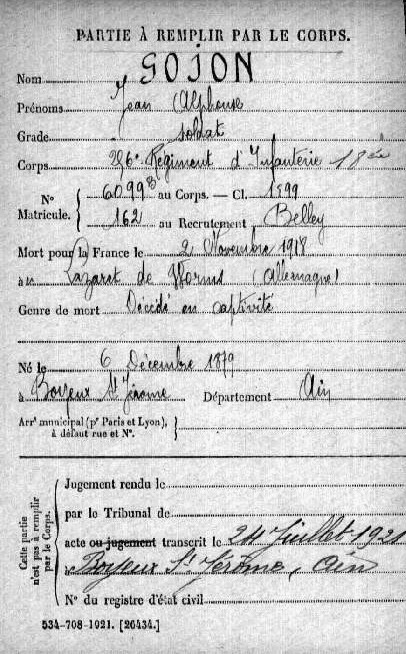 PARTIE À REMPLIR PAR LE CORPS.
Nom GOJON
Prénoms Jean Alphonse
Grade soldat
Corps 256e Régiment d'Infanterie
N° Matricule. 60993 au Corps. — Cl. 1899
162 au Recrutement Belley
Mort pour la France le 2 Novembre 1918
à Lazaret de Worms (Allemagne)
Genre de mort Décédé en captivité
Né le 6 Décembre 1879
à Boyeux St Jérome Département Ain
Arrt municipal (pr Paris et Lyon), à défaut rue et N°.
Cette partie n'est pas à remplir par le Corps.
Jugement rendu le
par le Tribunal de
acte ou jugement transcrit le 24 Juillet 1921
à Boyeux St Jérôme, Ain
N° du registre d'état civil
534-708-1921. [26434.]